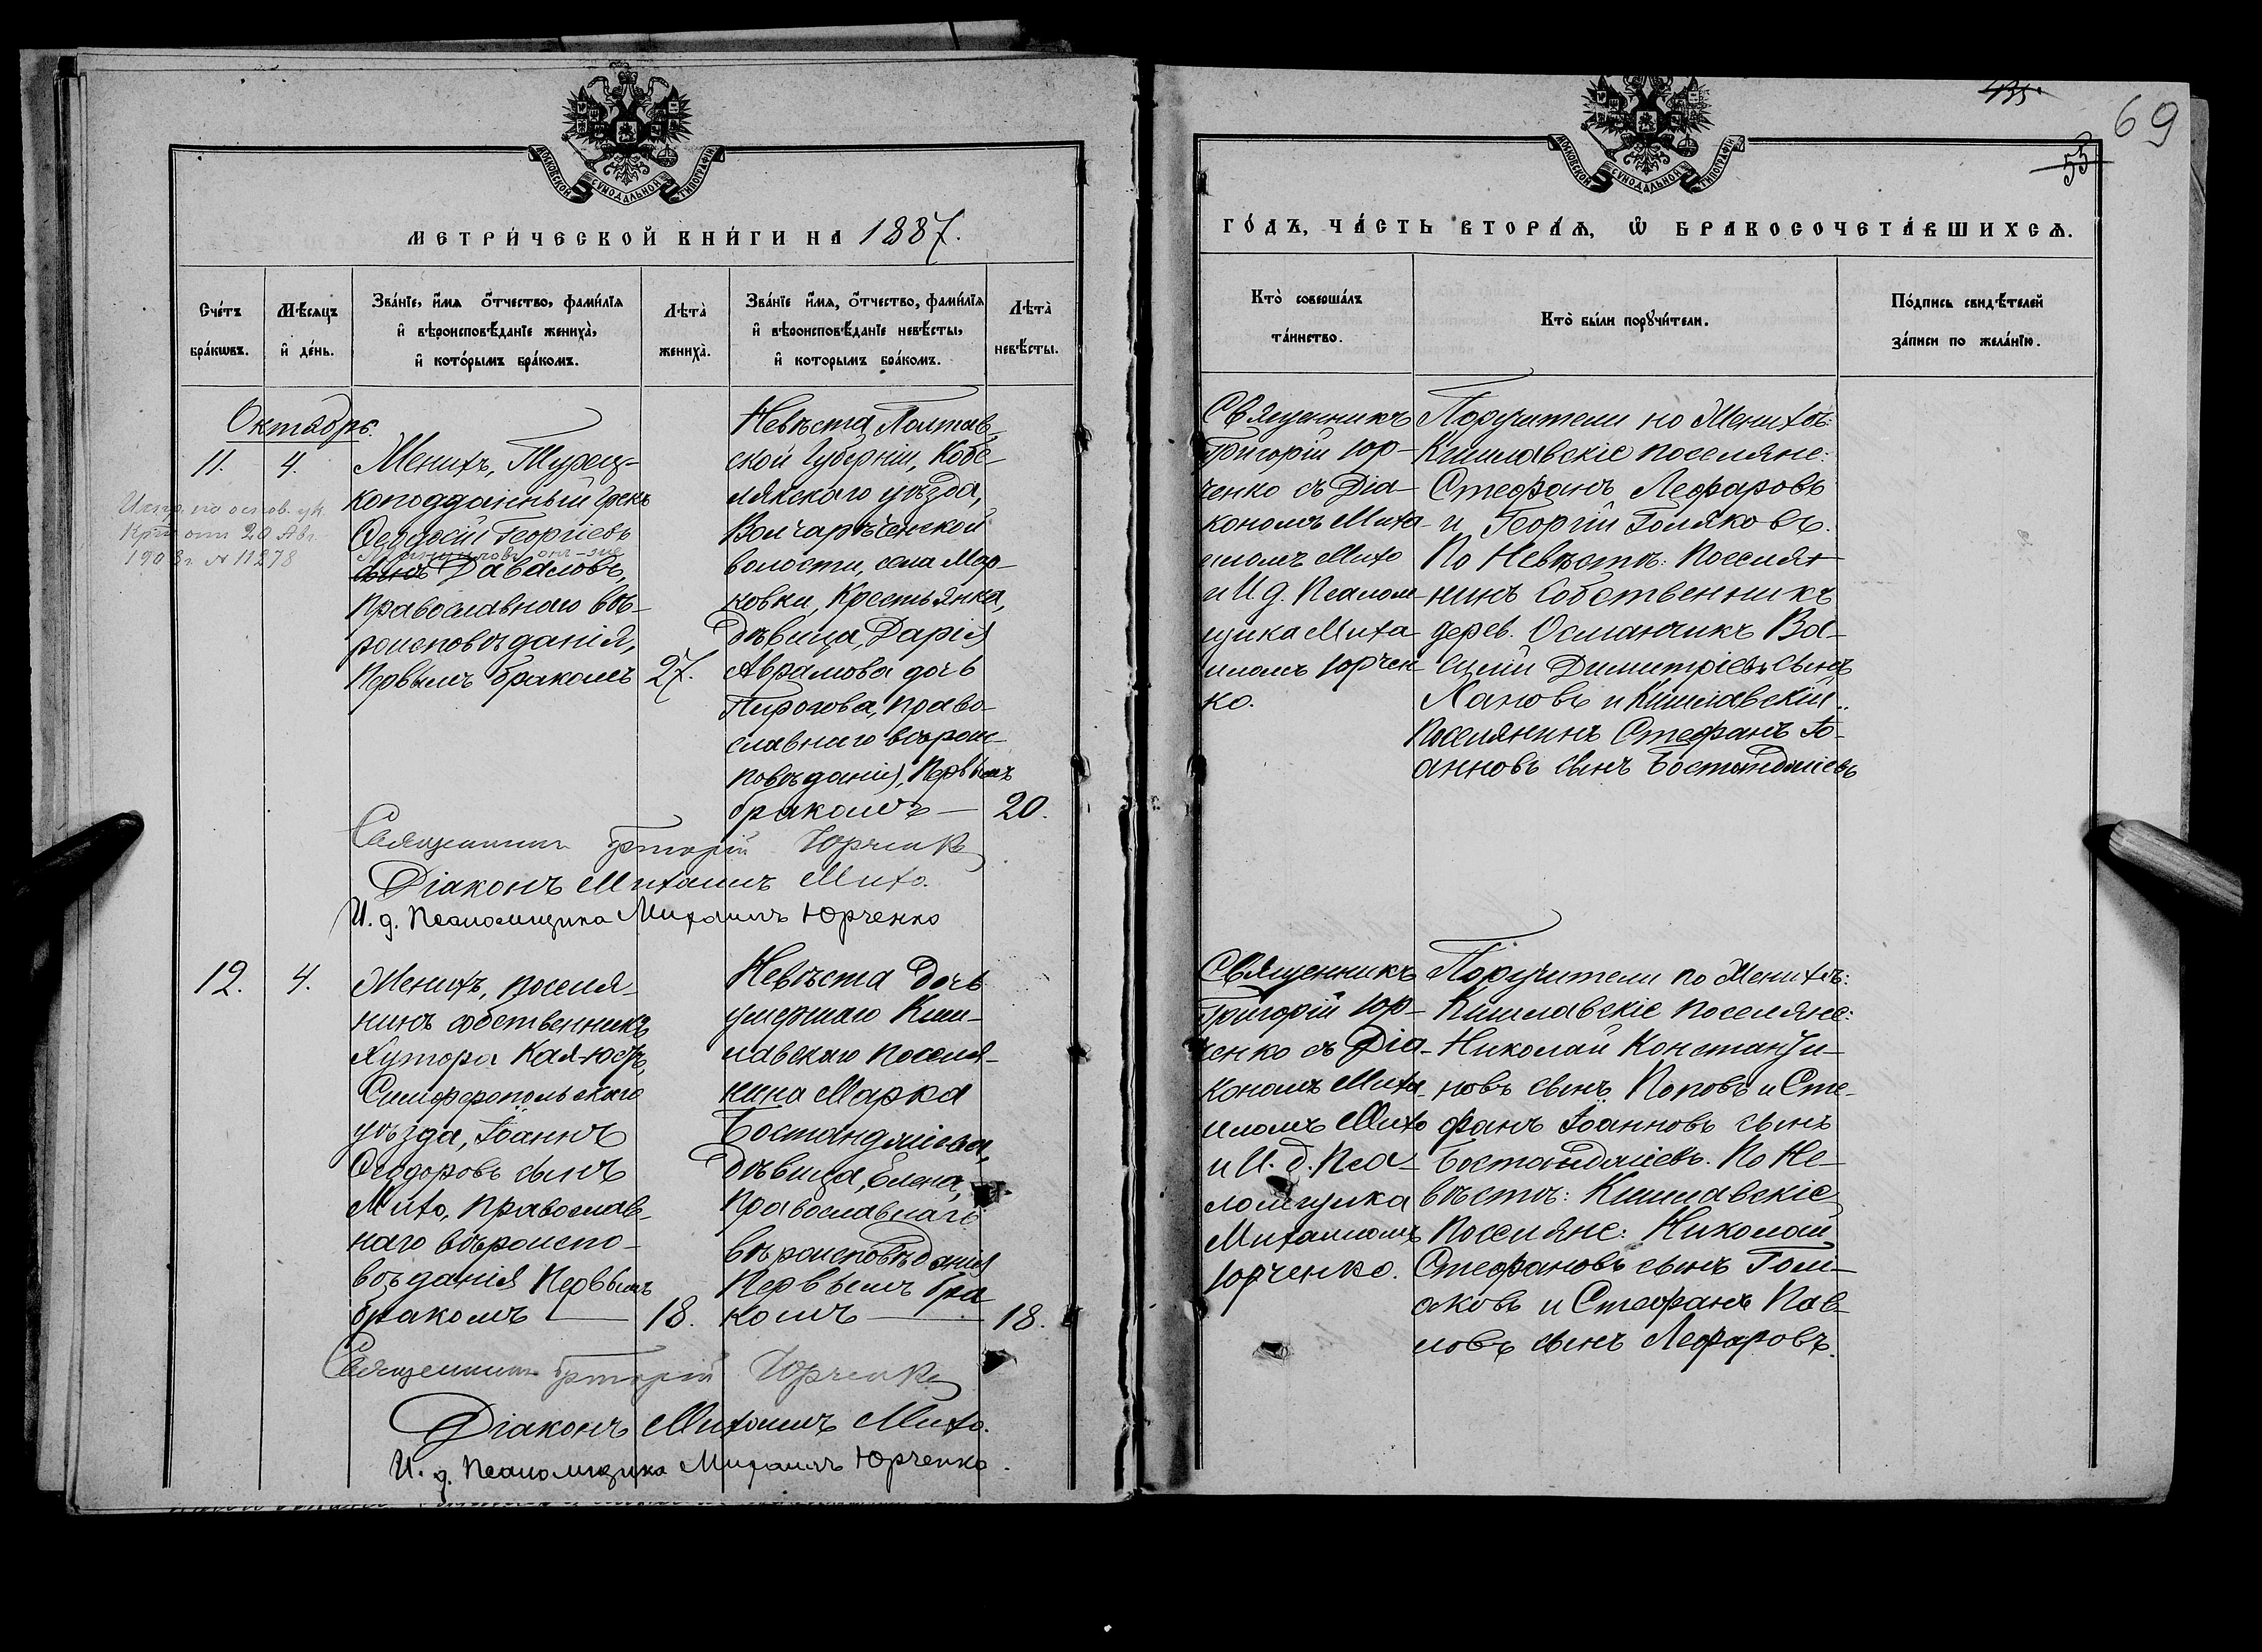 МОСКОВСКОЙ СѴНОДАЛЬНОЙ ТИПОГРАФІИ
МЕТРИ́ЧЕСКОЙ КНИ́ГИ НА 1887.
Сче́тъ бра́кωвъ.
Мѣ́сяцъ и҆ де́нь.
Зва́нїе, и҆́мя ѻ҆́тчество, фами́лїя
и҆ вѣроисповѣ́данїе жениха̀,
и҆ кото́рымъ бра́комъ.
Лѣта̀ жениха̀.
Зва́нїе и҆́мя, ѻ҆́тчество, фами́лїя
и҆ вѣроисповѣ́данїе невѣ́сты,
и҆ которымъ бра́комъ.
Лѣта̀ невѣ́сты.
Октябрь.
11.
4.
Женихъ, Турец-
коподданный Грекъ
Феодосій Георгіевъ
онъ-же
сынъ Даваловъ,
Православнаго вѣ-
роисповѣданія,
Первымъ бракомъ
27.
основ. ук.
отъ 20 Авг.
1908 г. № 11278
Невѣста Полтав-
ской Губерніи, Кобе-
лякскаго уѣзда,
волости, села Мар-
ковки, Крестьянка,
Дѣвица, Дарія
Аврамова дочь
Пирогова, Право-
славнаго вѣроис-
повѣданія, Первымъ
бракомъ —
20.
Священникъ Григорій Юрченко
Діаконъ Михаилъ Михо.
И. д. Псаломщика Михаилъ Юрченко
12.
4.
Женихъ, поселя-
нинъ собственникъ
Хутора
Симферопольскаго
уѣзда, Іоаннъ
Феодоровъ сынъ
Михо, Православ-
наго вѣроиспо-
вѣданія Первымъ
бракомъ —
18.
Невѣста Дочь
умершаго Киш-
лавскаго Поселя-
нина Марка
Бостанджіева,
Дѣвица, Елена,
Православнаго
вѣроисповѣданія
Первымъ бра
комъ —
18.
Священникъ Григорій Юрченко
Діаконъ Михаилъ Михо.
И. д. Псаломщика Михаилъ Юрченко.
МОСКОВСКОЙ СѴНОДАЛЬНОЙ ТИПОГРАФІИ
435.
69
55
ГО́ДЪ, ЧА́СТЬ ВТОРА́Ѧ, Ѽ БРАКОСОЧЕТА́ВШИХСѦ.
Кто̀ соверша́лъ
та́инство.
Кто̀ бы́ли порꙋчи́тели.
По́дпись свидѣ́телей
за́писи по жела́нїю.
Священникъ
Григорій Юр-
ченко съ Діа-
кономъ Миха-
иломъ Михо
и И. д. Псалом-
щика Миха-
иломъ Юрчен
ко.
Поручители по Женихѣ:
Кишлавскіе поселяне:
Стефанъ Лефаровъ
и Георгій Голяковъ.
По Невѣстѣ: Поселя-
нинъ Собственникъ
дерев. Османчикъ Ва-
силій Димитріевъ сынъ
Хановъ и Кишлавскій
Поселянинъ Стефанъ Іо-
анновъ сынъ Бостанджіевъ
Священникъ
Григорій Юр-
ченко съ Діа-
кономъ Миха-
иломъ Михо
и И. д. Пса-
ломщика
Михаиломъ
Юрченко.
Поручители по Женихѣ:
Кишлавскіе поселяне:
Николай Константи-
новъ сынъ Поповъ и Сте-
фанъ Іоанновъ сынъ
Бостанджіевъ. По Не-
вѣстѣ: Кишлавскіе
Поселяне: Николай
Стефановъ сынъ Голі-
аковъ и Стефанъ Пав-
ловъ сынъ Лефаровъ.